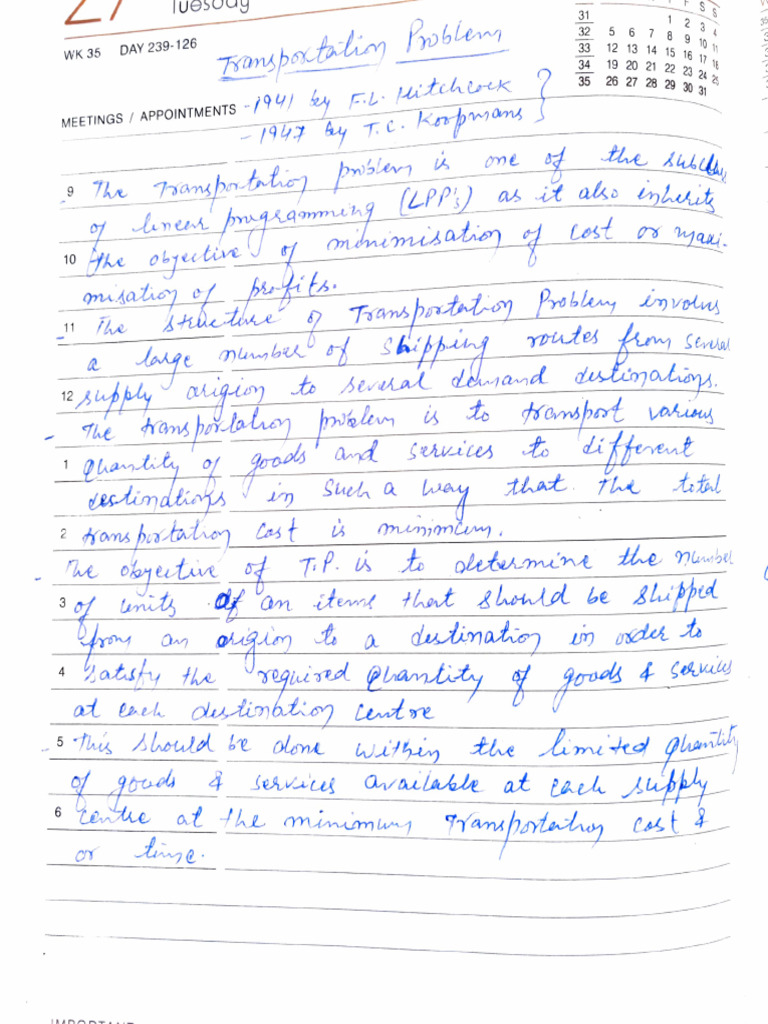 27
Tuesday
WK 35 DAY 239-126
F S S
31 1 2 3 4
32 5 6 7 8 9 10 11
33 12 13 14 15 16 17 18
34 19 20 21 22 23 24 25
35 26 27 28 29 30 31
Transportation Problem
MEETINGS / APPOINTMENTS - 1941 by F.L. Hitchcock
- 1947 by T.C. Koopmans
9 The Transportation problem is one of the subclass
of linear programming (LPP's) as it also inherits
10 the objective of minimisation of cost or maxi-
misation of profits.
11 The structure of Transportation Problem involves
a large number of shipping routes from several
12 supply origion to several demand destinations.
- The transportation problem is to transport various
1 Quantity of goods and services to different
destinations in such a way that the total
2 transportation cost is minimum.
- The objective of T.P. is to determine the number
3 of units of an items that should be shipped
from an origion to a destination in order to
4 satisfy the required Quantity of goods & services
at each destination centre
- 5 This should be done within the limited Quantity
of goods & services available at each supply
6 centre at the minimum Transportation cost &
or time.
IMPORTANT